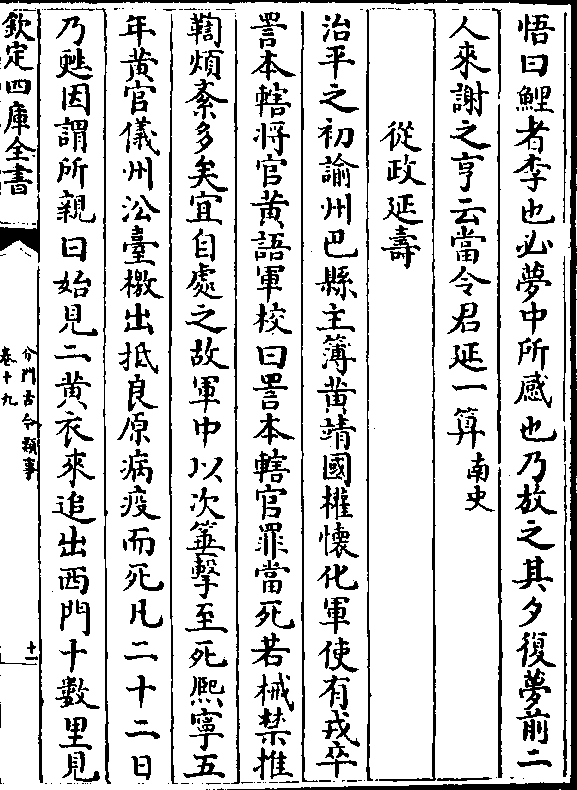 悟曰鯉者李也必夢中所感也乃放之其夕復夢前二
人來謝之亨云當令君延一算南史
從政延壽
治平之初諭州巴縣主簿黄靖國權懷化軍使有戍卒
詈本轄将官黄語軍校曰詈本轄官罪當死若械禁推
鞫煩紊多矣宜自處之故軍中以次箠擊至死熈寧五
年黄官儀州沿臺檄出抵良原病疫而死凡二十二日
乃甦因謂所親曰始見二黄衣來追出西門十數里見
欽定四庫全書
分門古今類事
卷十九
十一